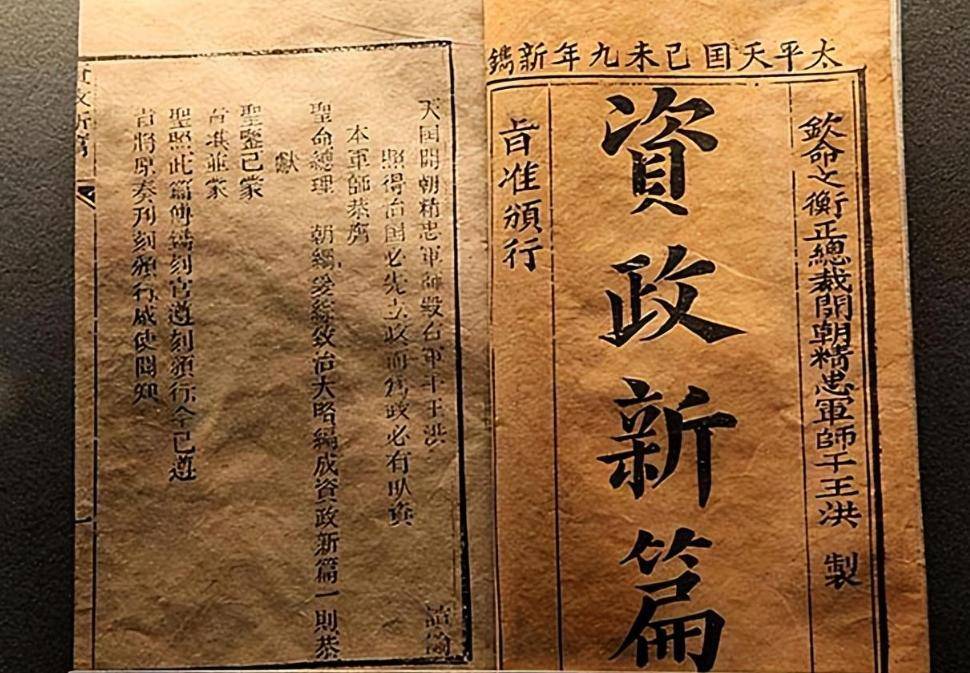 太平天囯己未九年新鐫
欽命文衡正總裁開朝精忠軍師干王洪 製
資政新篇
旨准頒行
天囯開朝精忠軍師殿右軍干王洪 諭
照得治囯必先立政而為政必有取資
本軍師恭膺
聖命總理 朝綱爰綜致治大略編成資政新篇一則恭
獻
聖鑒已蒙
旨准並蒙
聖照此篇傳鐫刻官遵刻頒行今已遵
旨將原奏刊刻頒行咸使聞知